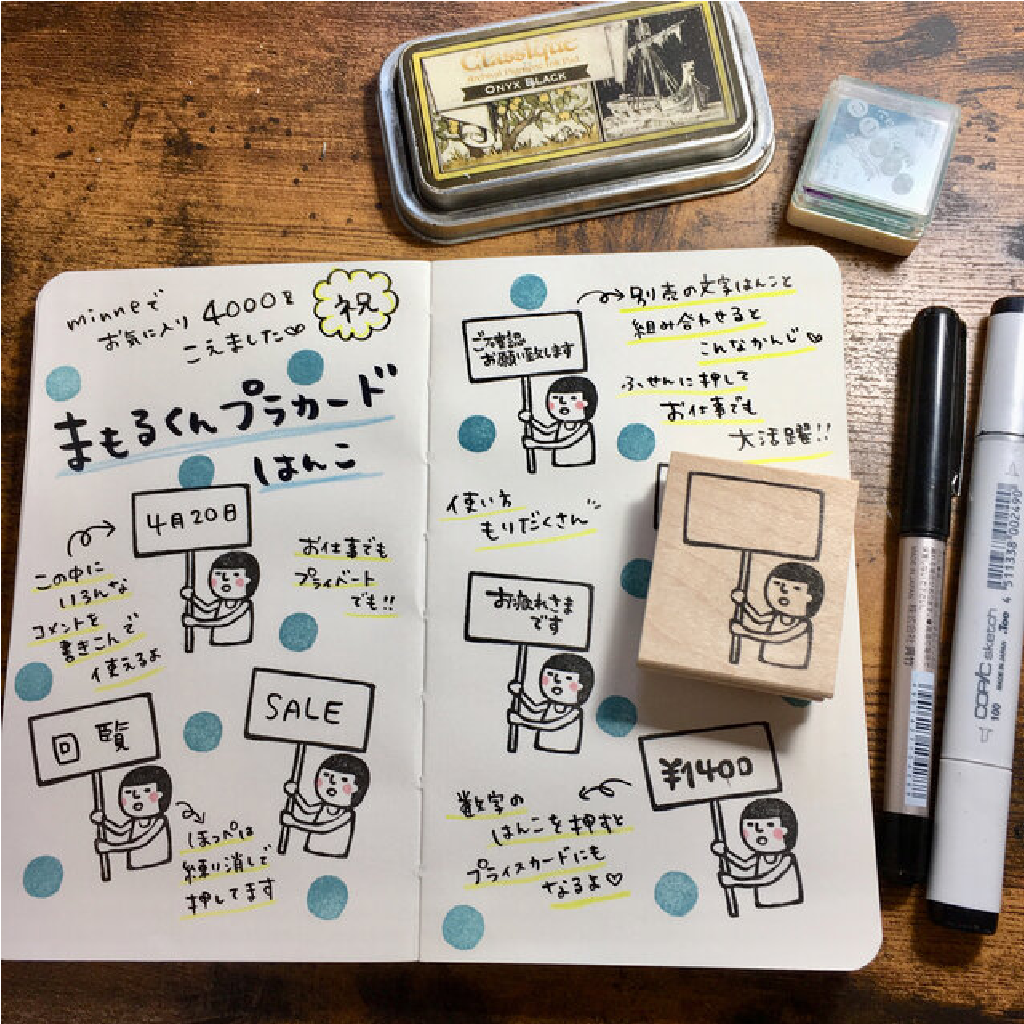 Classique
ONYX BLACK
minneで
お気に入り 4000を
こえました♡
祝
まもるくんプラカード
はんこ
4月20日
この中に
いろんな
コメントを
書きこんで
使えるよ
お仕事でも
プライベート
でも!!
回覧
SALE
ほっぺは
練り消しで
押してます
ご確認
お願い致します
別売の文字はんこと
組み合わせると
こんなかんじ♡
ふせんに押して
お仕事でも
大活躍!!
使い方
もりだくさん
お疲れさま
です
¥1400
数字の
はんこを押すと
プライスカードにも
なるよ♡
COPIC sketch
MADE IN JAPAN .Too
100
4 511338 002490